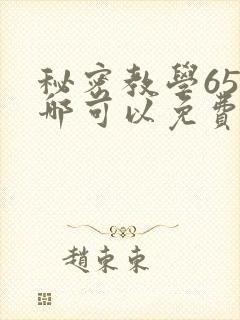 秘密教學65
哪可以免費
趙東東